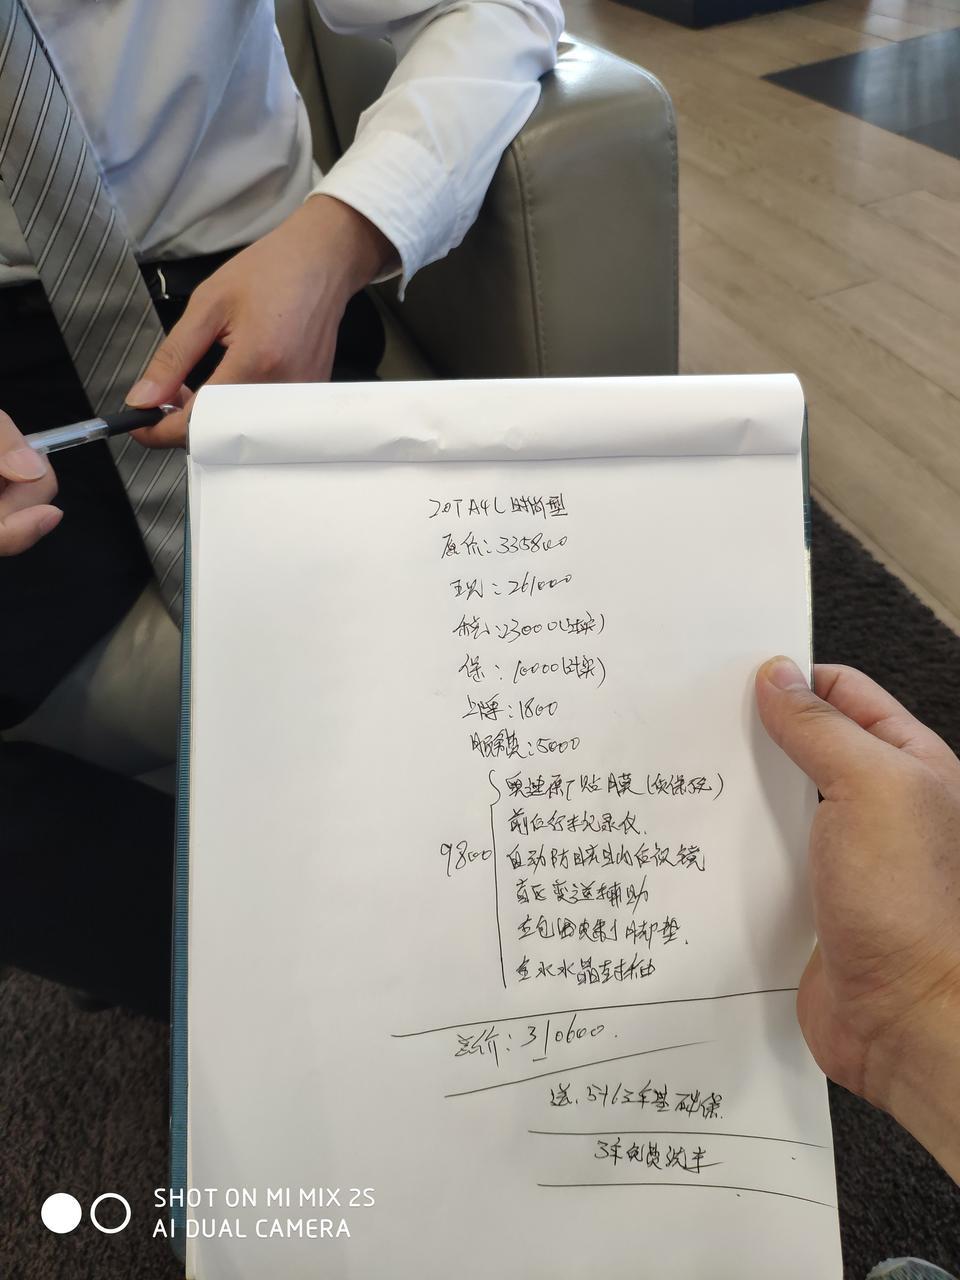 20T A4L 时尚型
原价:335800
现:261000
税:23000(按实)
保:10000(按实)
上牌:1800
服务费:5000
9800
奥迪原厂贴膜(质保项)
前后行车记录仪.
自动防眩目内后视镜
盲区变道辅助
全包围皮制脚垫.
鱼水水晶封釉
总价:310600.
送.5年6次基础保.
3年免费洗车
SHOT ON MI MIX 2S
AI DUAL CAMERA